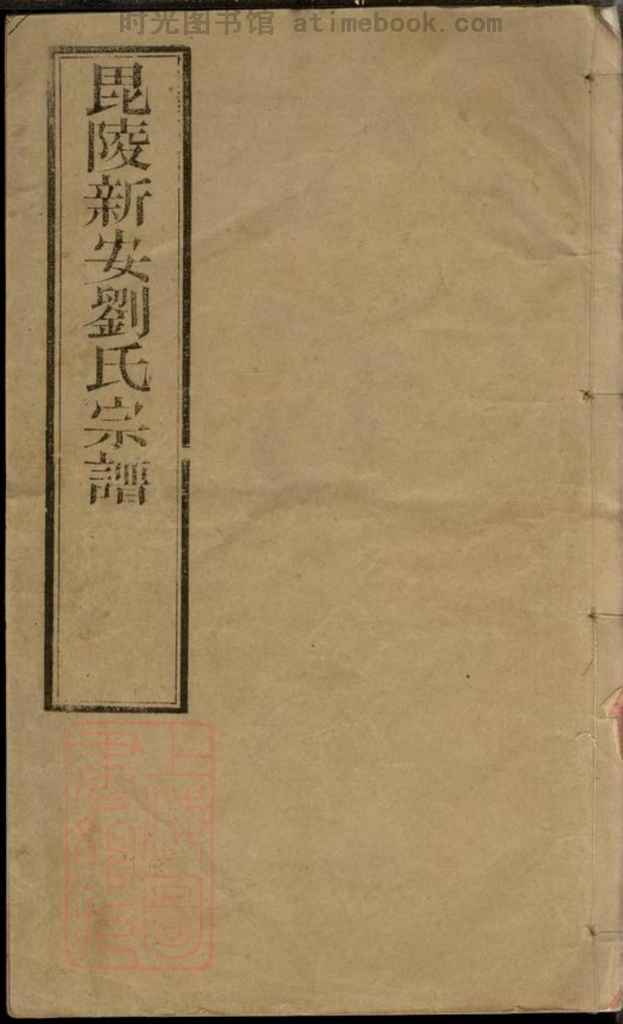 时光图书馆 atimebook.com
毘陵新安劉氏宗譜